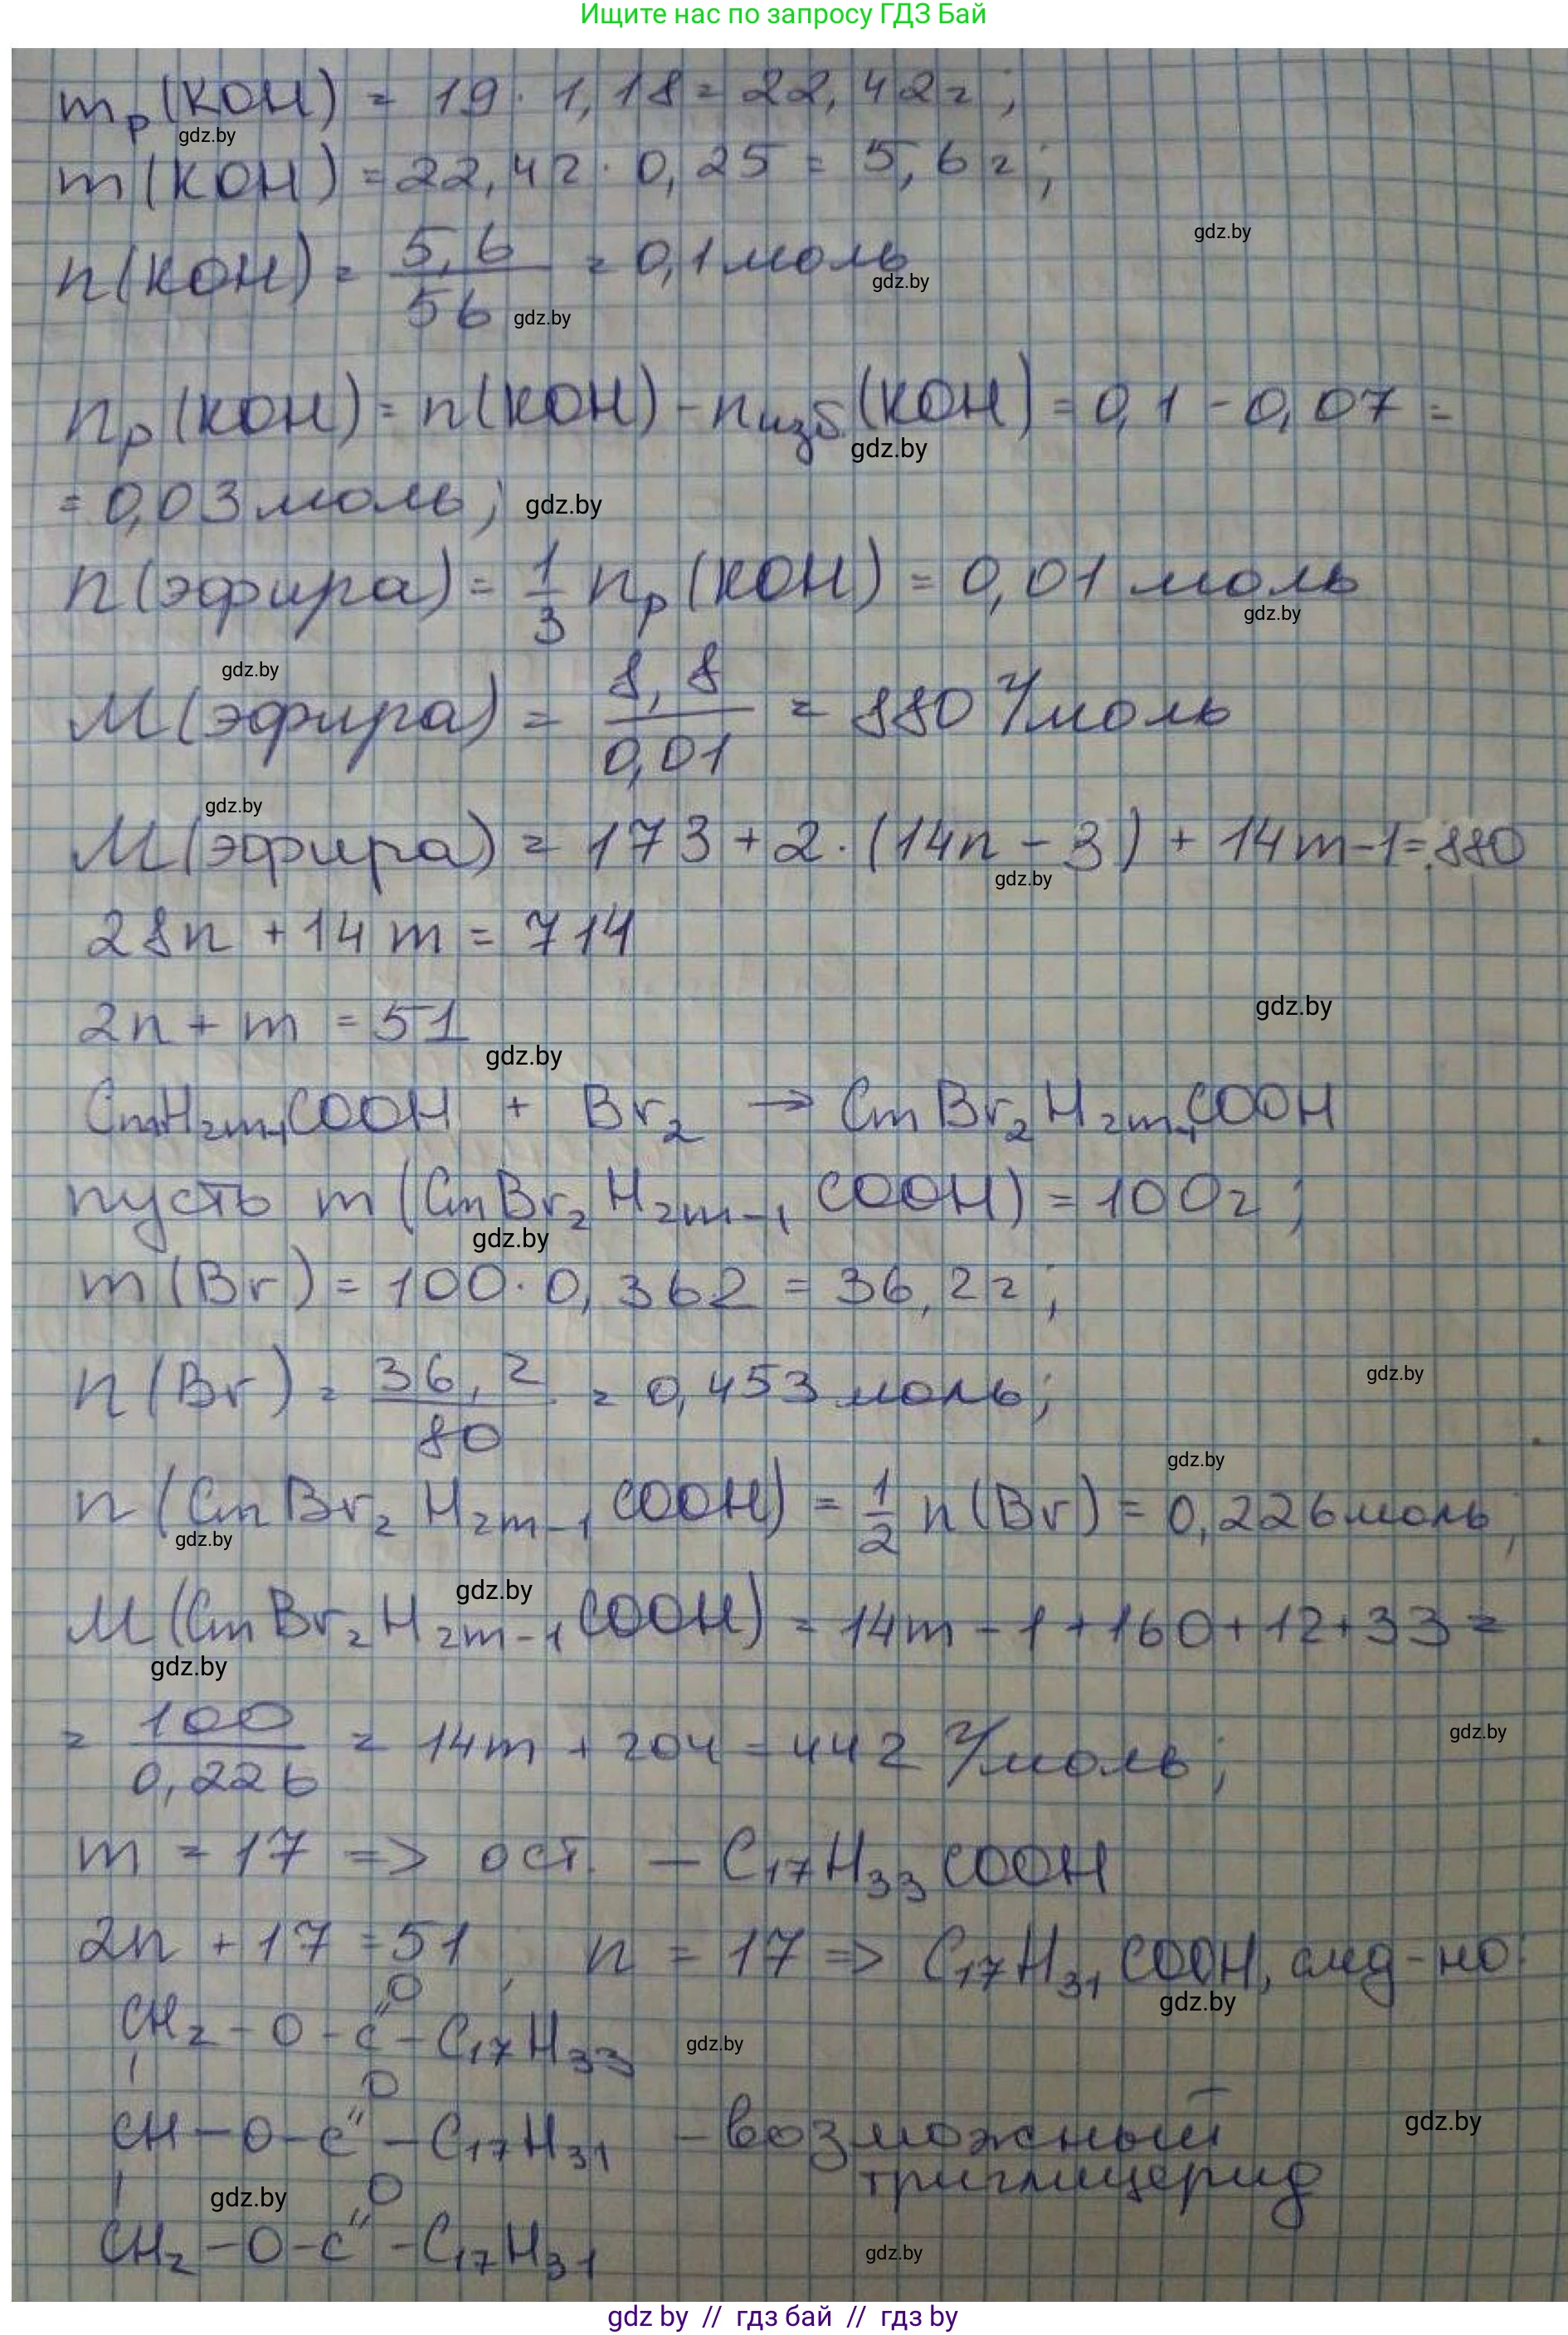 Ищите нас по запросу ГДЗ Бай
mр(KOH) = 19 · 1,18 = 22,42г;
gdz.by
m(KOH) = 22,42 · 0,25 = 5,6г;
gdz.by
n(KOH) = 5,6/56 = 0,1 моль
gdz.by
gdz.by
nр(KOH) = n(KOH) - nизб.(KOH) = 0,1 - 0,07 =
gdz.by
= 0,03 моль; gdz.by
n(эфира) = 1/3 nр(KOH) = 0,01 моль
gdz.by
gdz.by
M(эфира) = 8,8/0,01 = 880 г/моль
gdz.by
M(эфира) = 173 + 2·(14n - 3) + 14m-1=880
gdz.by
28n + 14m = 714
gdz.by
2n + m = 51
gdz.by
CmH2m-1COOH + Br2 → CmBr2H2m-1COOH
пусть m(CmBr2H2m-1COOH) = 100г;
gdz.by
m(Br) = 100 · 0,362 = 36,2г;
gdz.by
n(Br) = 36,2/80 = 0,453 моль;
gdz.by
n(CmBr2H2m-1COOH) = 1/2 n(Br) = 0,226моль;
gdz.by
gdz.by
M(CmBr2H2m-1COOH) = 14m - 1 + 160 + 12 + 33 =
gdz.by
gdz.by
= 100/0,226 = 14m + 204 = 442 г/моль;
m = 17 => ост. — C17H33COOH
2n + 17 = 51, n = 17 => C17H31COOH, след-но:
gdz.by
O
CH2 - O - C" - C17H33
gdz.by
| O
CH - O - C" - C17H31 - возможный
gdz.by
триглицерид
| gdz.by O
CH2 - O - C" - C17H31
gdz.by
gdz by // гдз бай // гдз by